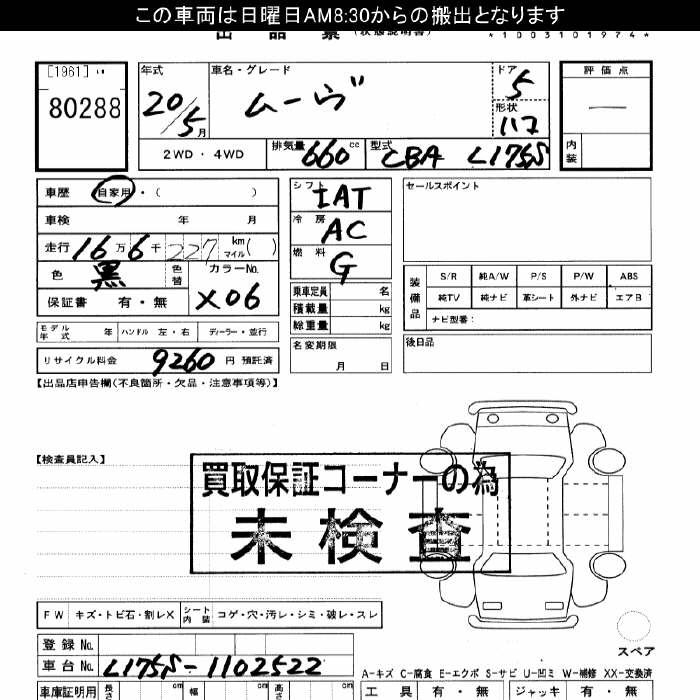 この車両は日曜日AM8:30からの搬出となります
出品票 (状態説明書) *1003101974*
[1961]
80288
年式 20/5月
車名・グレード ムーヴ
ドア 5
形状 ハコ
評価点 —
内装
2WD・4WD 排気量 660cc 型式 CBA L175S
車歴 自家用・( )
車検 年 月
走行 16万6千227km マイル( )
色 黒 色替 カラーNo. X06
保証書 有・無
モデル年式 年 ハンドル 左・右 ディーラー・並行
リサイクル料金 9260円 預託済
シフト IAT
冷房 AC
燃料 G
乗車定員 名
積載量 kg
総重量 kg
名変期限 月 日
セールスポイント
装備品 S/R 純A/W P/S P/W ABS
純TV 純ナビ 革シート 外ナビ エアB
ナビ型番:
後日品
【出品店申告欄(不良箇所・欠品・注意事項等)】
【検査員記入】
買取保証コーナーの為
未検査
FW キズ・トビ石・割レX シート内装 コゲ・穴・汚レ・シミ・破レ・スレ
スペア
登録No.
車台No. L175S-1102522
A-キズ C-腐食 E-エクボ S-サビ U-凹ミ W-補修 XX-交換済
車庫証明用 長さ cm 幅 cm 高さ cm 工具 有・無 ジャッキ 有・無